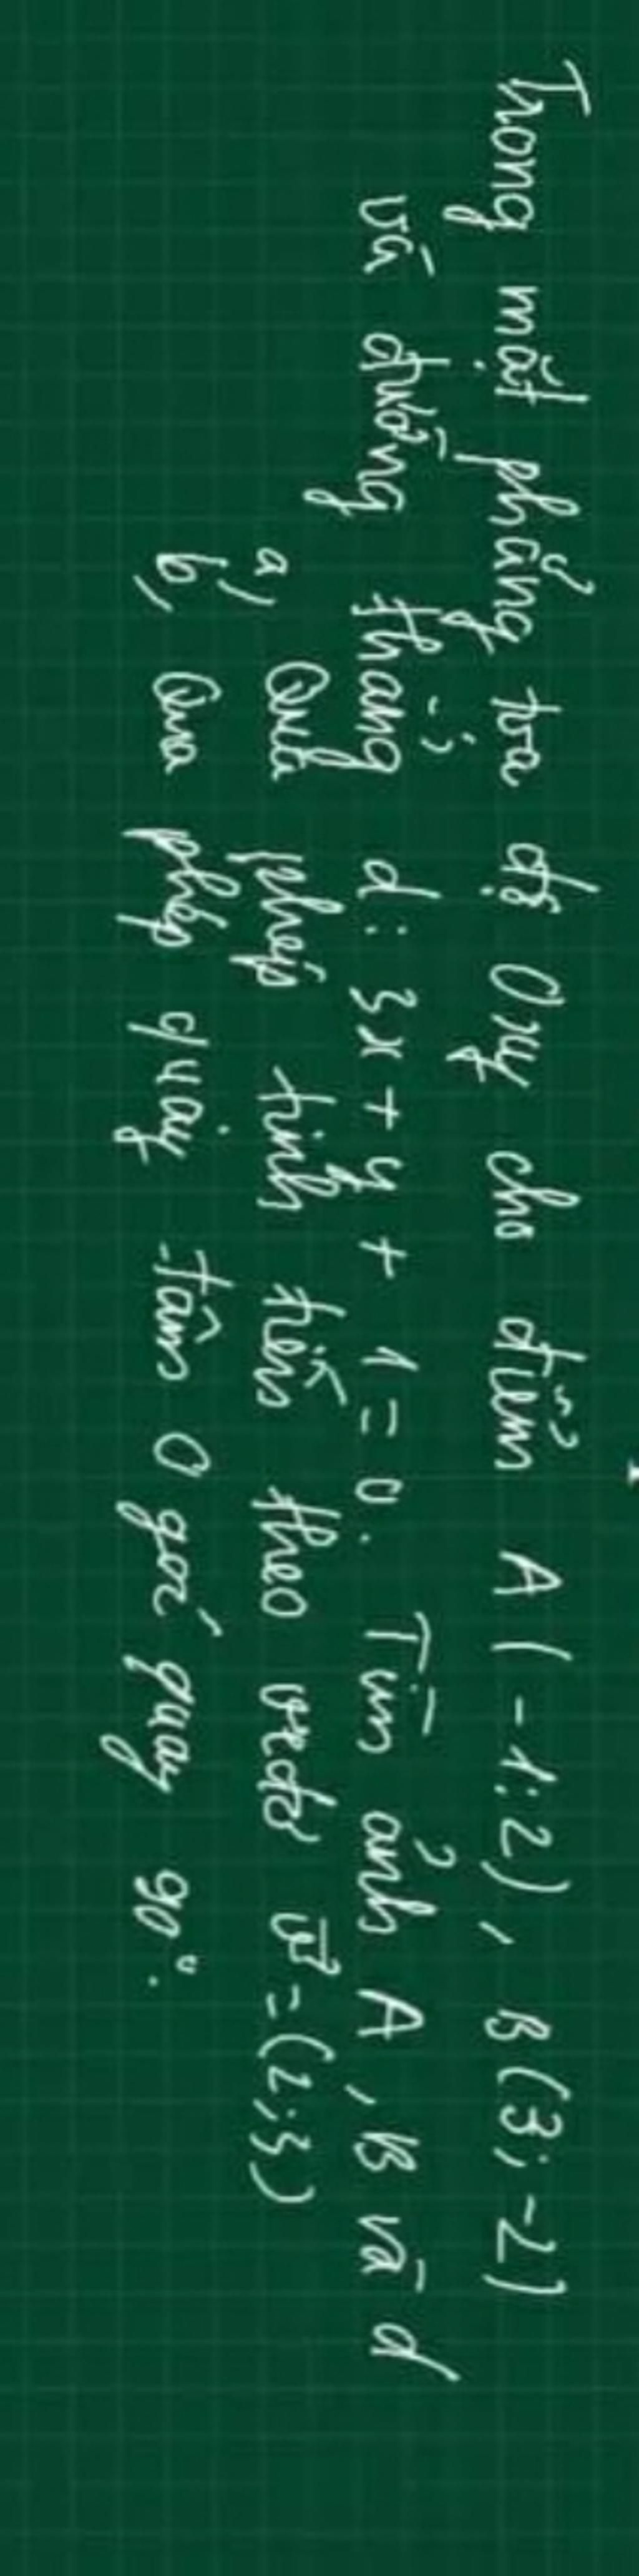 Trong mặt phẳng tọa độ Oxy cho điểm A (-1;2), B (3;-2)
và đường thẳng d: 3x + y + 1 = 0. Tìm ảnh A, B và d
a, Qua phép tịnh tiến theo vectơ v = (2;3)
b, Qua phép quay tâm O góc quay 90°.